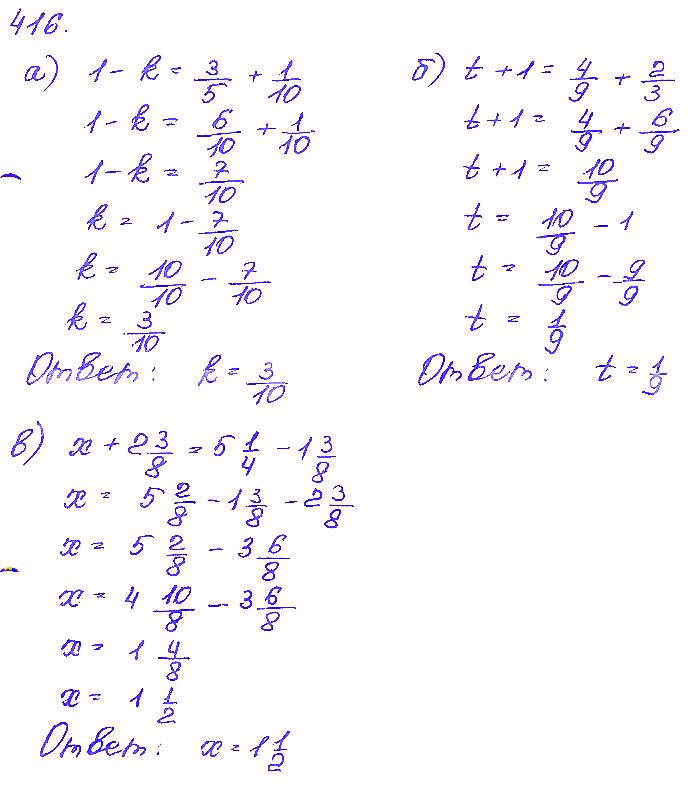 416.
а) 1 - k = 3/5 + 1/10
1 - k = 6/10 + 1/10
1 - k = 7/10
k = 1 - 7/10
k = 10/10 - 7/10
k = 3/10
Ответ: k = 3/10
б) t + 1 = 4/9 + 2/3
t + 1 = 4/9 + 6/9
t + 1 = 10/9
t = 10/9 - 1
t = 10/9 - 9/9
t = 1/9
Ответ: t = 1/9
в) x + 2 3/8 = 5 1/4 - 1 3/8
x = 5 2/8 - 1 3/8 - 2 3/8
x = 5 2/8 - 3 6/8
x = 4 10/8 - 3 6/8
x = 1 4/8
x = 1 1/2
Ответ: x = 1 1/2